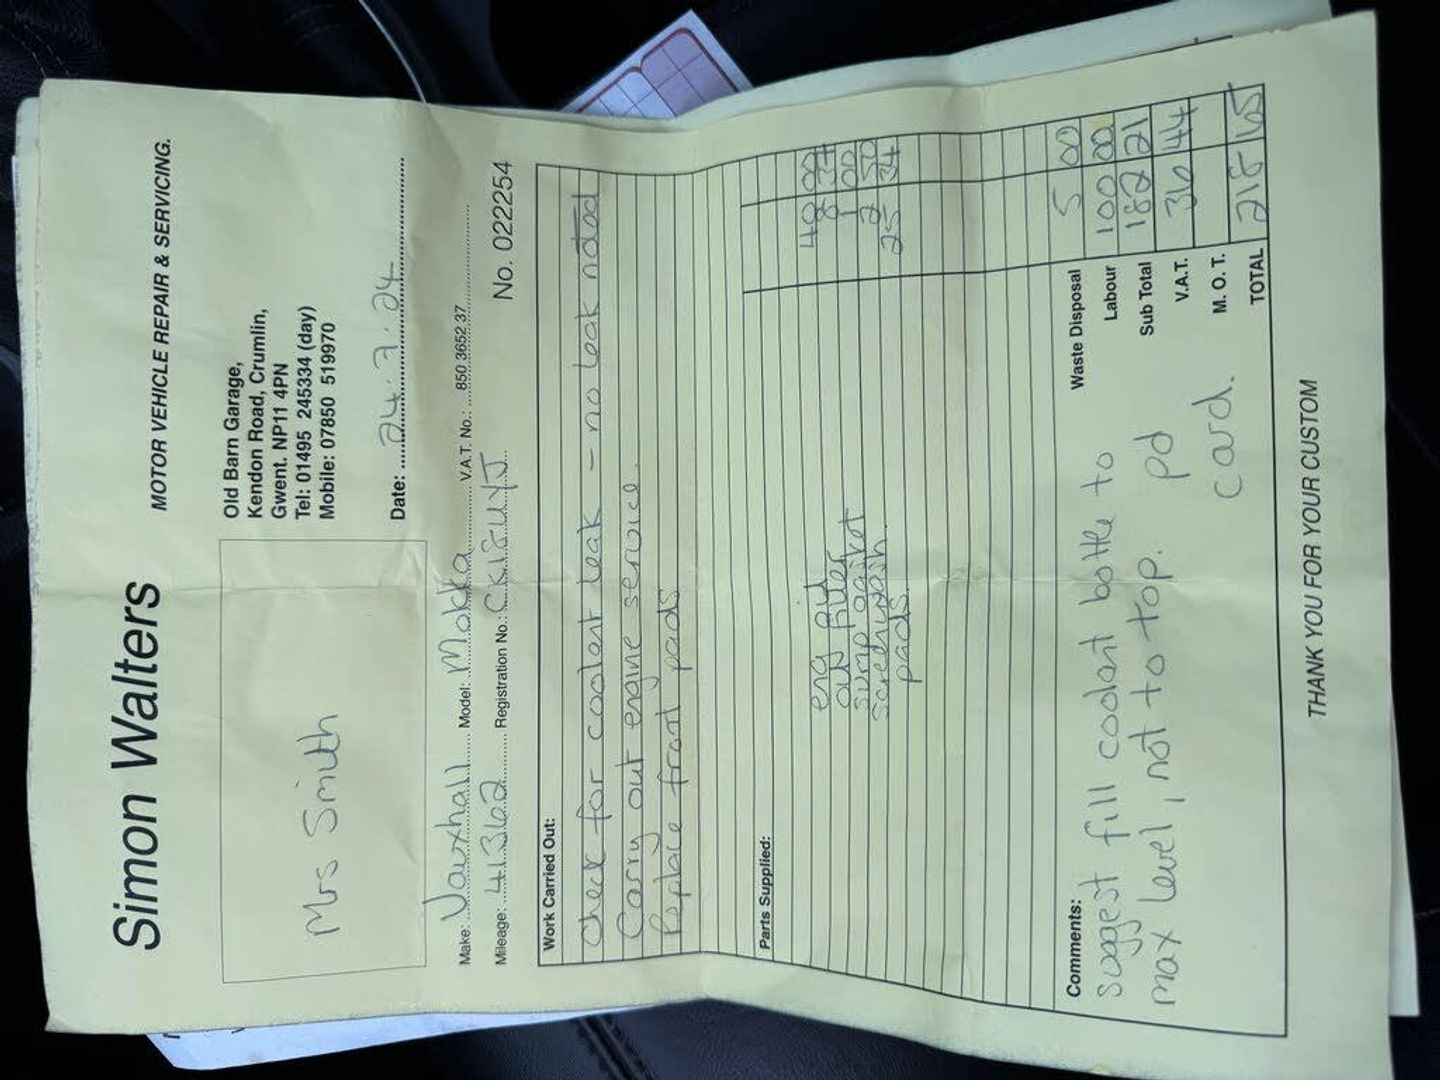 Simon Walters
MOTOR VEHICLE REPAIR & SERVICING.
Mrs Smith
Old Barn Garage,
Kendon Road, Crumlin,
Gwent. NP11 4PN
Tel: 01495 245334 (day)
Mobile: 07850 519970
Date: 24.7.24
Make: Vauxhall Model: Mokka V.A.T. No.: 850 3652 37
Mileage: 41362 Registration No.: CK18UYJ No. 022254
Work Carried Out:
Check for coolant leak - no leak noted
Carry out engine service.
Replace front pads
Parts Supplied:
eng oil 40 00
oil filter 8 37
sump gasket 1 00
screenwash 2 50
pads. 25 34
Comments:
suggest fill coolant bottle to
max level, not to top. pd
card.
Waste Disposal 5 00
Labour 100 00
Sub Total 182 21
V.A.T. 36 44
M. O. T.
TOTAL 218 65
THANK YOU FOR YOUR CUSTOM